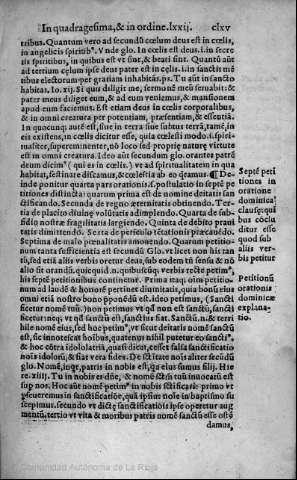 In quadragesima, & in ordine. lxxij. clxv
tribus. Quantum vero ad secundũ cœlum deus est in cœlis,
in angelicis spiritibꝰ. V nde glo. In cœlis est deus. i. in secre
tis spiritibus, in quibus est vt sint, & beati sint. Quantũ aũt
ad tertium cęlum ipse deus pater est in cęlis. i. in sanctis mẽ
tibus electorum per gratiam inhabitãs. ps. Tu aũt in sancto
habitas. Io. xij. Si quis diligit me, sermonẽ meũ seruabit: &
pater meus diliget eum, & ad eum veniemus, & mansionem
apud eum faciemus. Est etiam deus in cœlis corporalibus,
& in omni creatura per potentiam, præsentiam, & essentiã.
In quocunq; aũt est, siue in terra siue subtus terrã, manẽ in
eis existens, in cœlis dicitur esse, quia cœlesti modo. i. spiri-
tualiter, supereminenter, nõ loco sed proprię naturę virtute
est in omni creatura. Ideo aũt secundum glo. orantes patrẽ
deum dicim⁹ (qui es in cœlis) vt ad spiritualitatem in qua
habitat, festinare discamus, & cœlestia ab eo q̃ramus. ¶ De-
inde ponitur quarta pars orationis. s. postulatio in septẽ pe
titiones distincta: quarum prima est de nominis deitatis san
ctificando. Secunda de regno æternitatis obtinendo. Ter-
tia de placito diuinę volũtatis adimplendo. Quarta de sub-
sidio nostræ fragilitatis largiendo. Quinta de debito praui
tatis dimittendo. Sexta de periculo tẽtationis pręcauendo.
Septima de malo pœnalitatis amouendo. Quarum petitio-
num tanta sufficientia est secundũ Glo. vt licet non his tan
tũ, sed etiã aliis verbis oretur deus, sub eodem tñ sensu & nõ
alio sit orandũ. quicquid .n. quibuscũq; verbis recte petimꝰ,
his septẽ petitionibus continetur. Prima itaq; oim petitio-
num ad laudẽ & honorẽ pertinet diuinitatis, quia bonũ eius
omni etiã nostro bono pponẽdũ est. ideo petimus, (Sancti
ficetur nomẽ tuũ.) non petimus vt qđ non est sanctũ, sancti
ficetur: neq; vt qđ sanctũ est, sanctius fiat. Sanctũ .n. & terri
bile nomẽ eius, sed hoc petimꝰ, vt sicut deitatis nomẽ sanctũ
est, sic innotescat hoibus, quatenus nihil putetur eo sanctiꝰ.
& hoc cõtra idololatriã, quasi dicat, cesset falsa sanctificatio
nois idolorũ; & fiat vera fides. De sctitate nois aliter secũdũ
glo. Nomẽ, inqt, patris in nobis est, q̃a eius sumus filij. Hie
re. xiiij. Tu in nobis es dñe, & nomẽ sctũ tuũ inuocatũ est
sup nos. Hoc aũt nomẽ petimꝰ in nobis sctificari: primo vt
pseueremus in sanctificatiõe, quã ipsum nole in baptismo su
scepimus. secundo vt dictę sanctificatiõis ipse operetur aug
mentũ, tertio vt vita & moribus patris nomẽ sanctũ esse ostẽ
damus,
Septẽ peti
tiones in
oratione
dominica:
clausę: qui
bus coclu
ditur esse
quod sub
aliis ver-
bis petitur
Petitionũ
orationis
dominicæ
explana-
tio.
Comunidad Autónoma de La Rioja